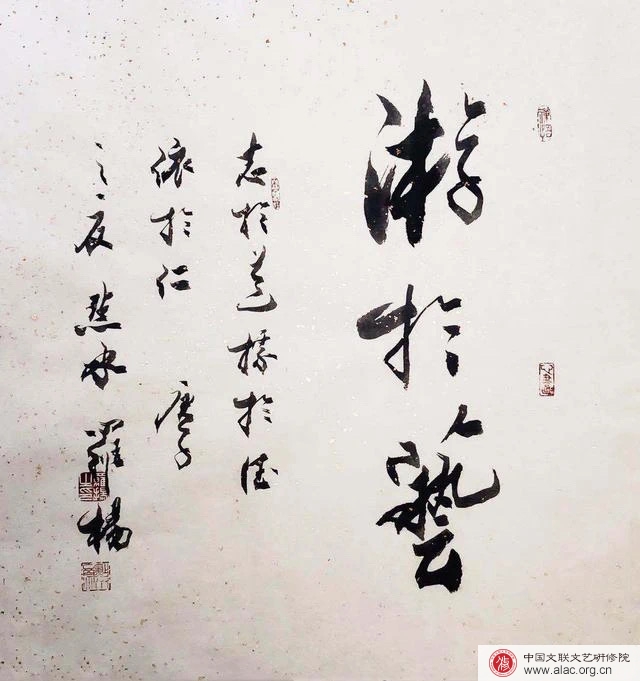 游於藝
志於道據於德
依於仁 庚子
之夏 羅楊
中国文联文艺研修院
www.alac.org.cn